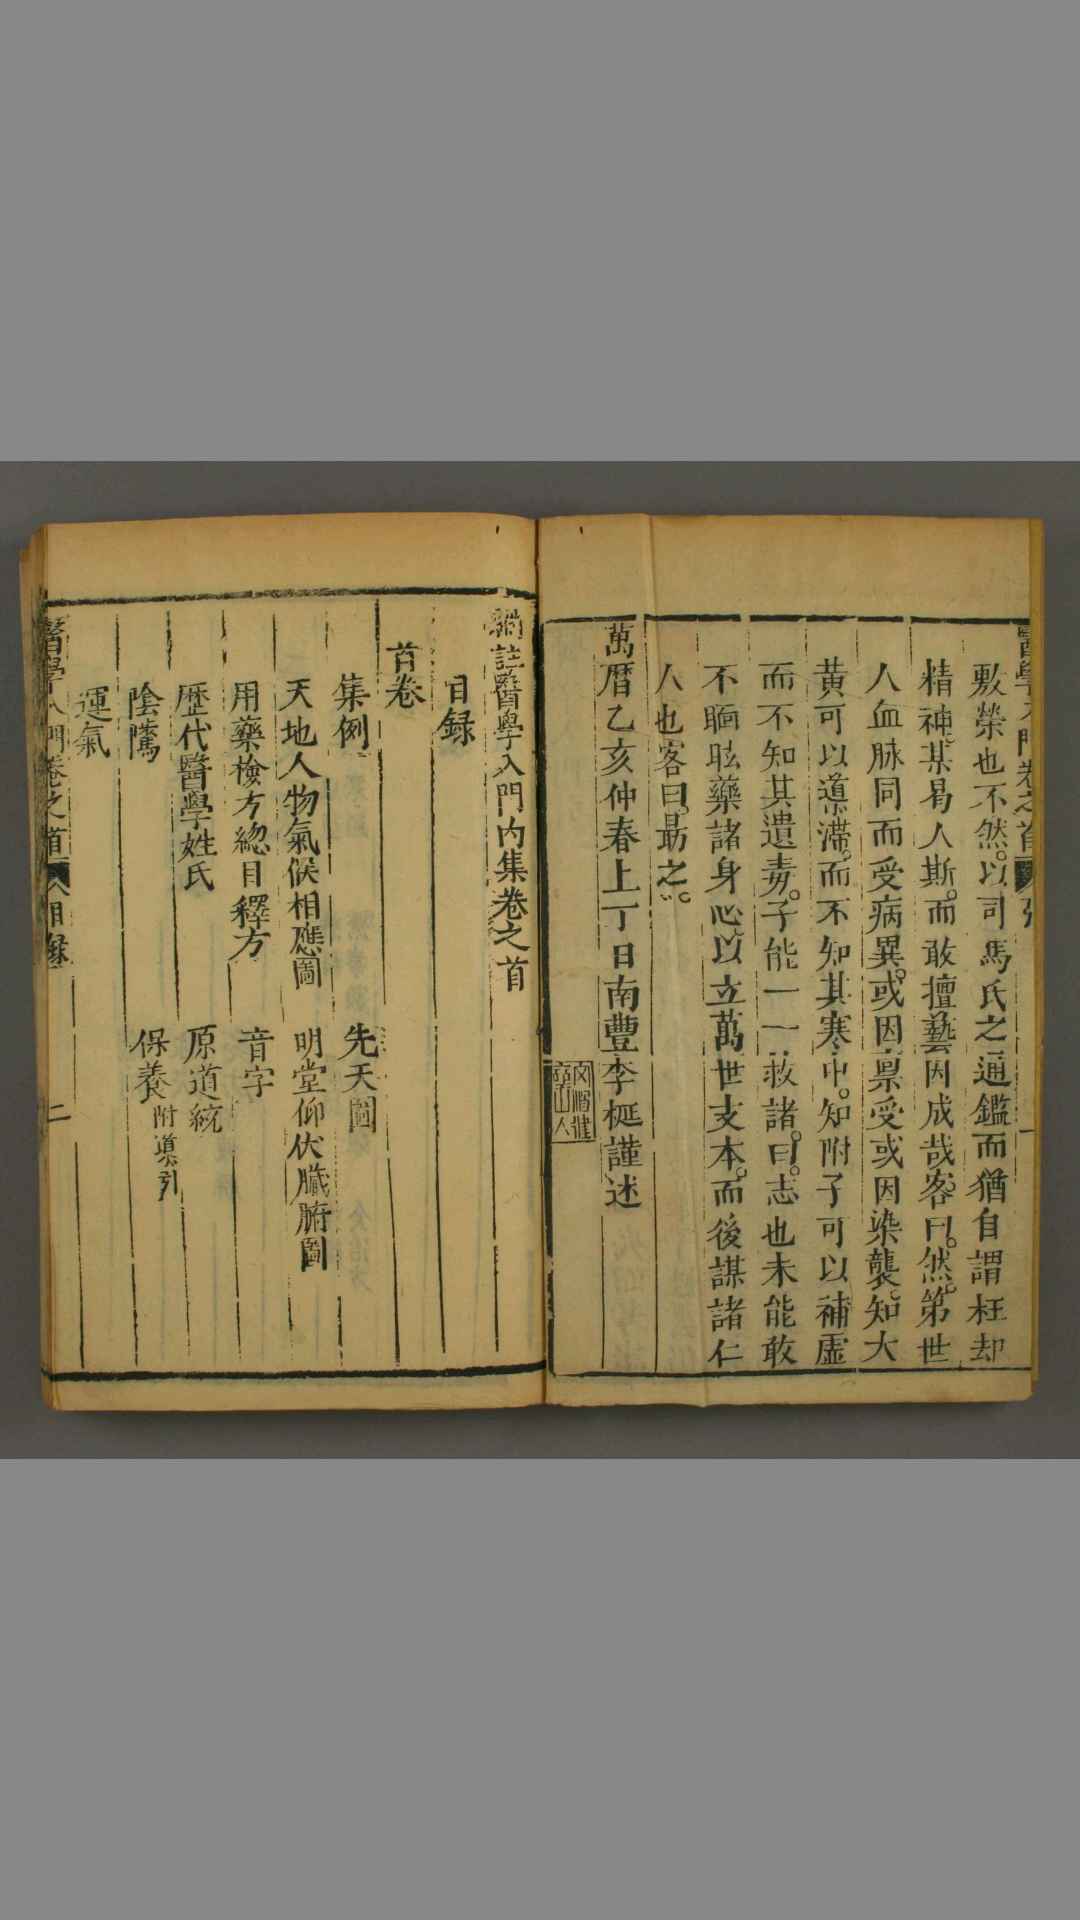 醫學入門卷之首 一
敷榮也不然以司馬氏之通鑑而猶自謂枉却
精神某曷人斯而敢擅藝因成哉客曰然第世
人血脉同而受病異或因禀受或因染襲知大
黄可以導滯而不知其寒中知附子可以補虛
而不知其遺毒子能一一救諸曰志也未能敢
不瞑眩藥諸身心以立萬世支本而後謀諸仁
人也客曰勗之
萬曆乙亥仲春上丁日南豐李梴謹述
註醫學入門內集卷之首
目録
首卷
集例 先天圖
天地人物氣候相應圖 明堂仰伏臟腑圖
用藥檢方總目釋方 音字
歷代醫學姓氏 原道統
陰隲 保養附導引
運氣
醫學入門卷之首 目録 二